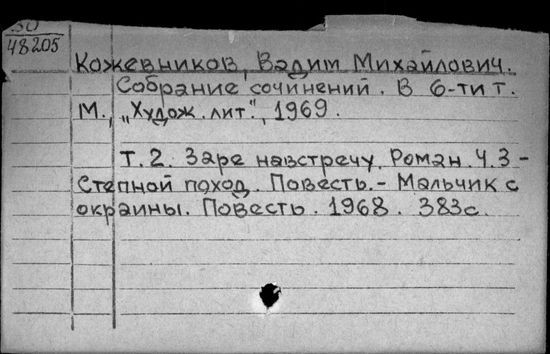 48205
Кожевников, Вадим Михайлович.
Собрание сочинений. В 6-ти т.
М., „Худож. лит.", 1969.
Т. 2. Заре навстречу. Роман. Ч. 3 -
Степной поход. Повесть. - Мальчик с
окраины. Повесть. 1968. 383с.